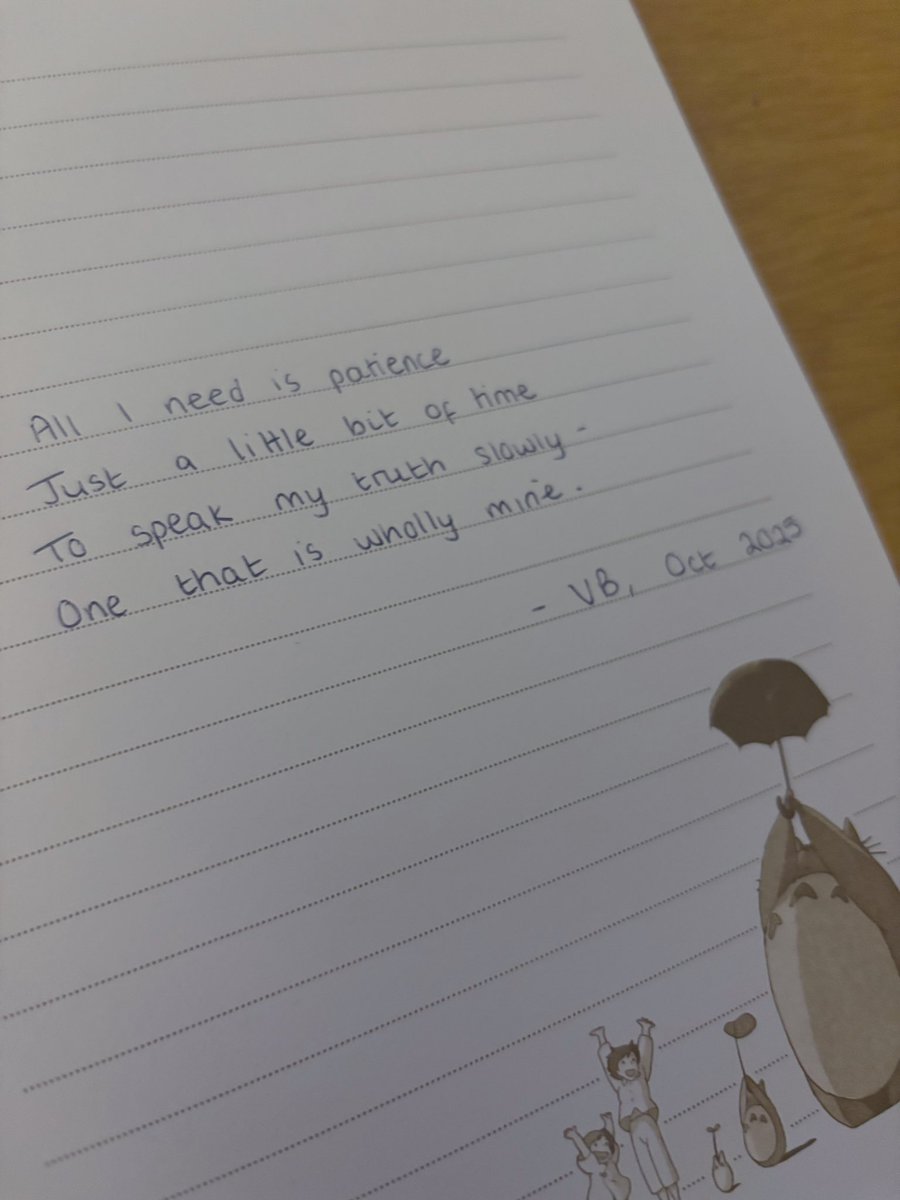 All I need is patience
Just a little bit of time
To speak my truth slowly-
One that is wholly mine.
- VB, Oct 2025